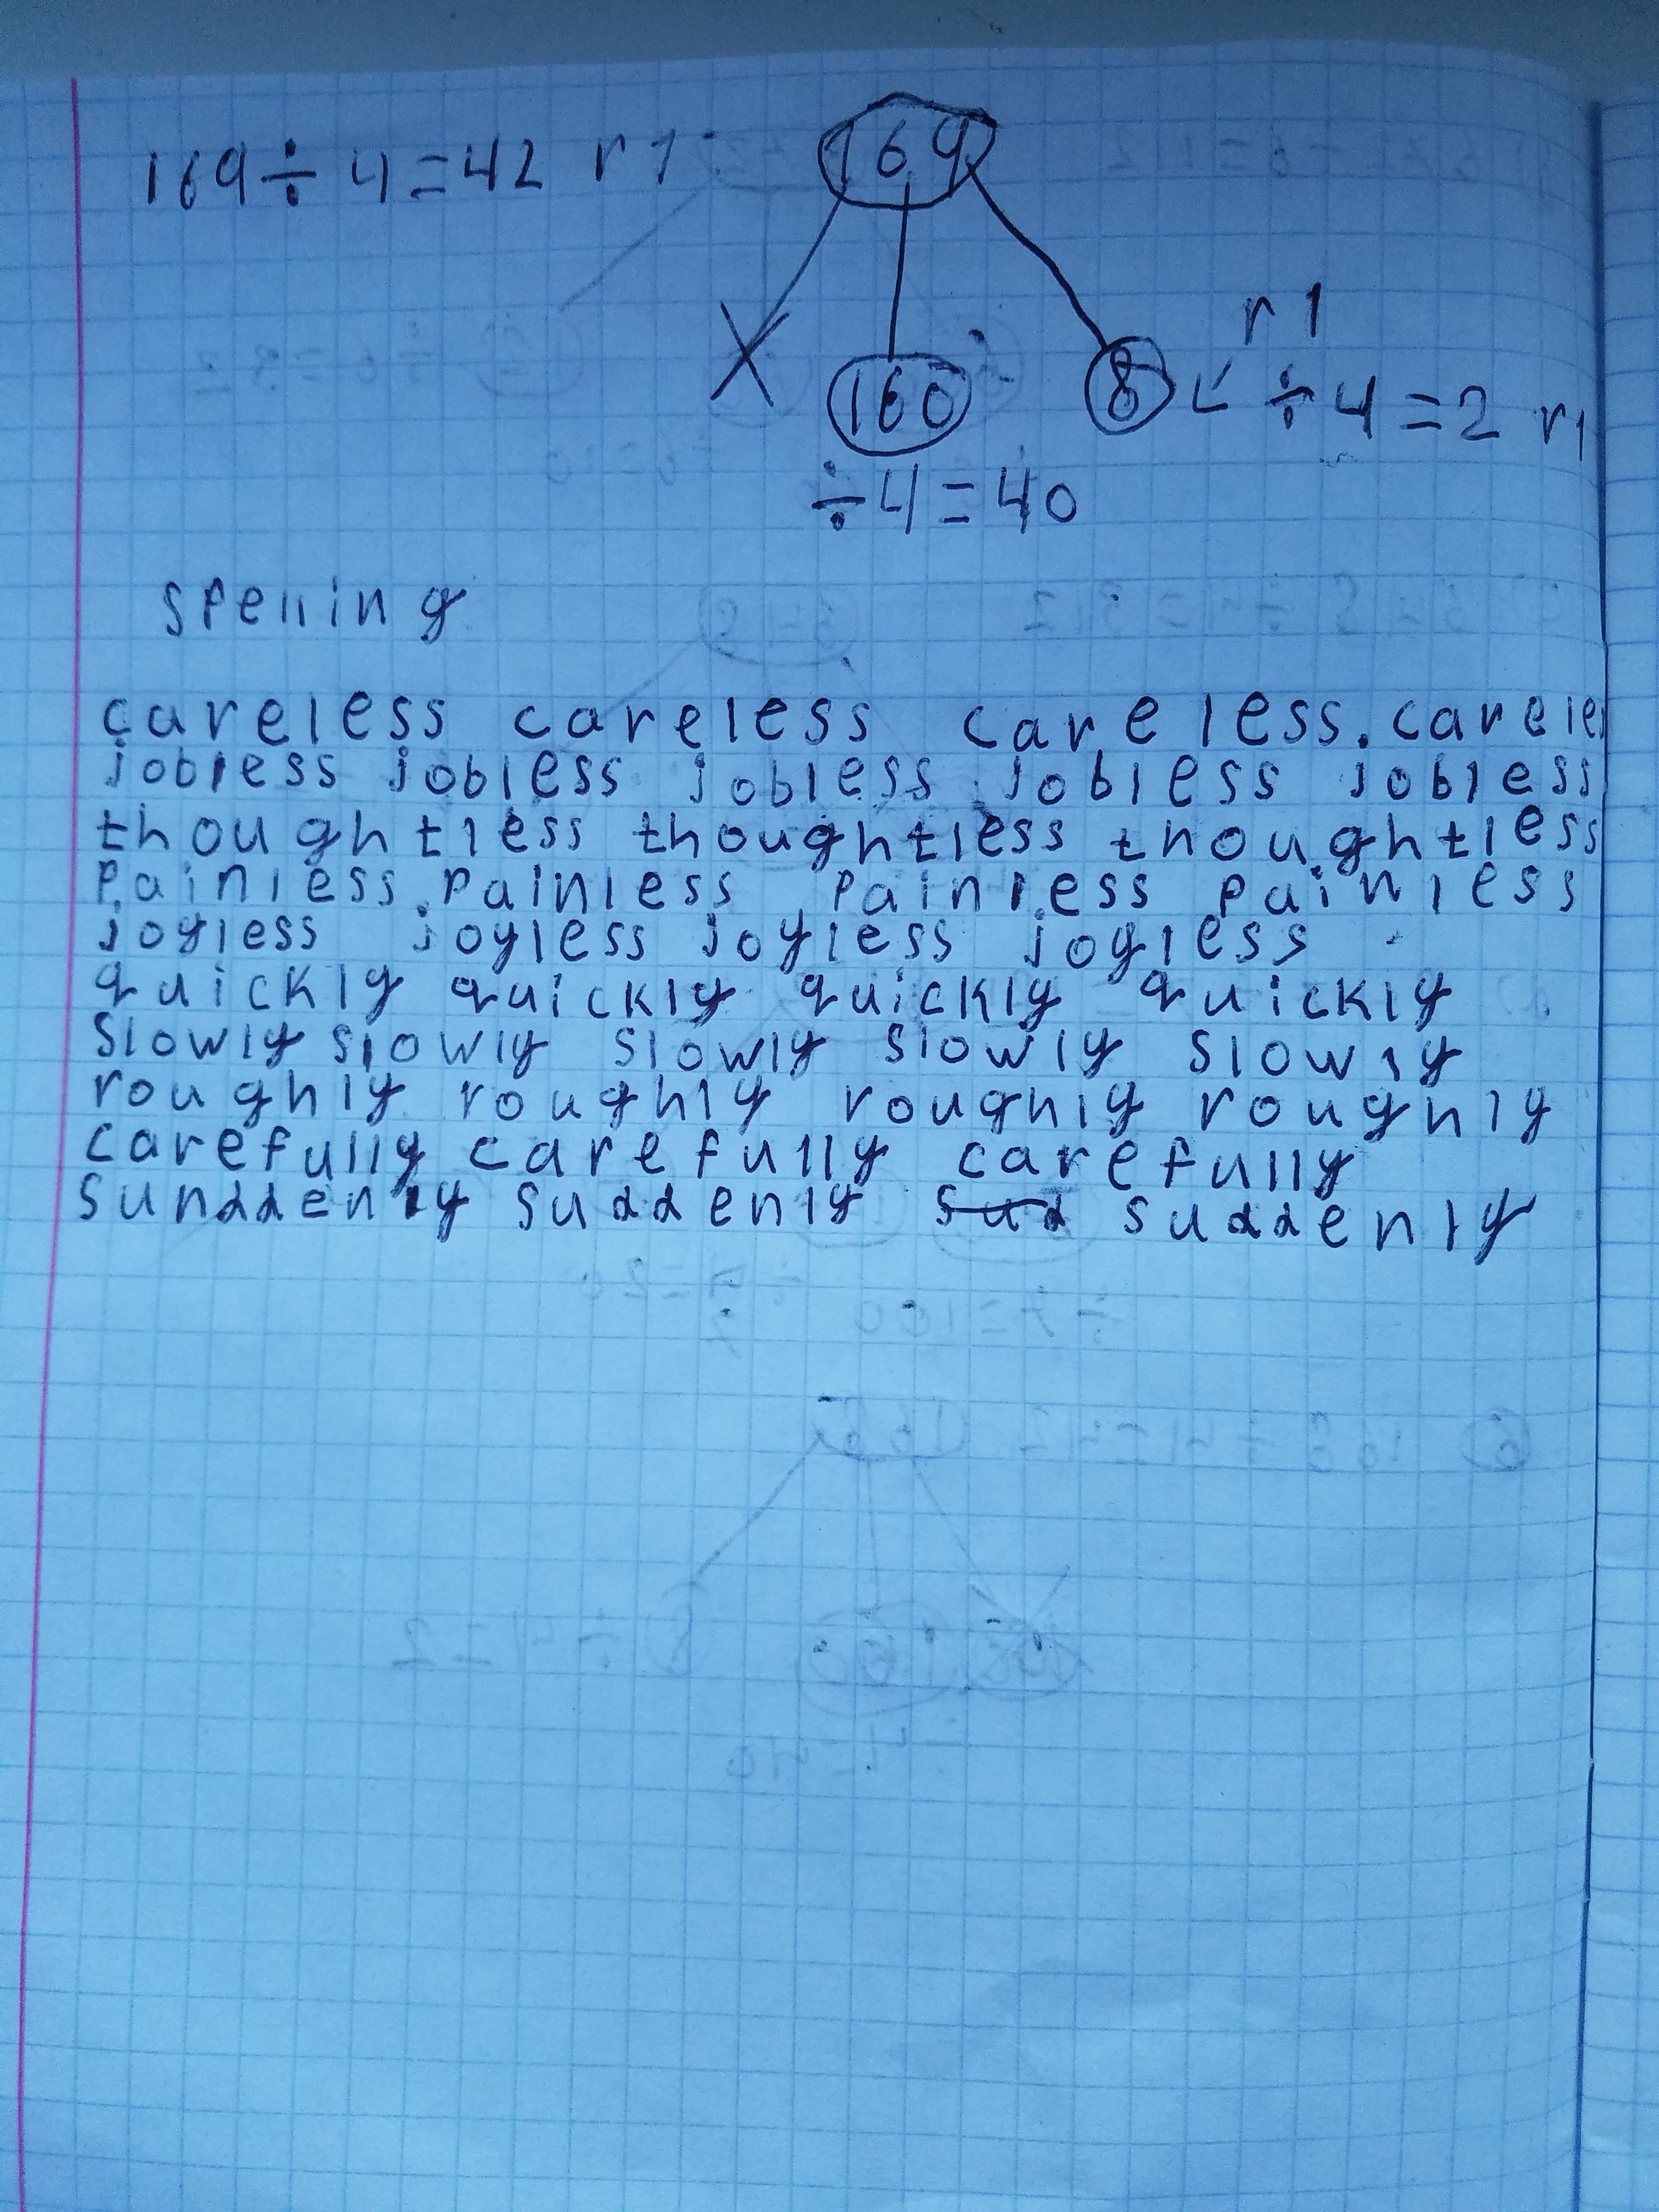 169 ÷ 4 = 42 r 1
169
r 1
160 8 ÷ 4 = 2 r1
÷ 4 = 40
spelling
careless careless careless. carele
jobless jobless jobless jobless jobless
thoughtless thoughtless thoughtless
Painless painless painless painless
joyless joyless joyless joyless
quickly quickly quickly quickly
slowly slowly slowly slowly slowly
roughly roughly roughly roughly
carefully carefully carefully
sunddenly suddenly sud suddenly